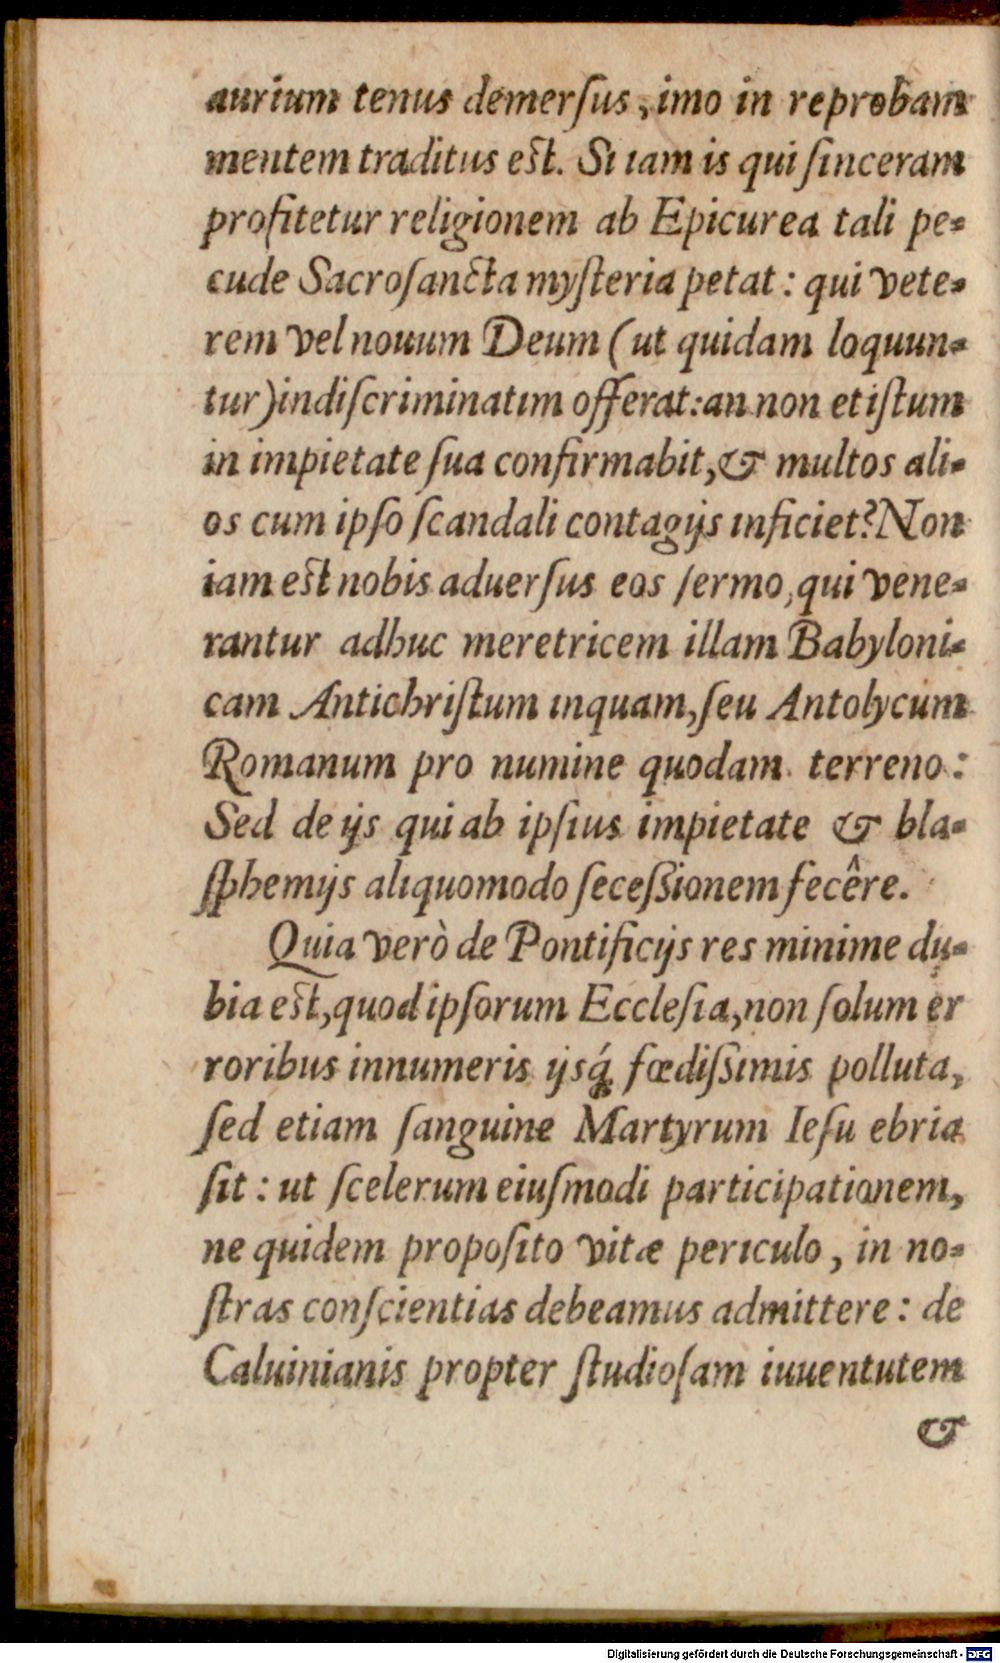 aurium tenus demerſus, imo in reprobam
mentem traditus est. Si iam is qui ſinceram
profitetur religionem ab Epicurea tali pe-
cude Sacroſancta myſteria petat: qui vete-
rem vel nouum Deum (ut quidam loquun-
tur) indiſcriminatim offerat: an non et iſtum
in impietate ſua confirmabit, & multos ali-
os cum ipſo ſcandali contagijs inficiet? Non
iam est nobis aduerſus eos ſermo, qui vene-
rantur adhuc meretricem illam Babyloni-
cam Antichriſtum inquam, ſeu Antolycum
Romanum pro numine quodam terreno:
Sed de ijs qui ab ipſius impietate & bla-
ſphemijs aliquomodo ſeceſsionem fecêre.
Quia verò de Pontificijs res minime du-
bia est, quod ipſorum Eccleſia, non ſolum er
roribus innumeris ijsq́; fœdiſsimis polluta,
ſed etiam ſanguine Martyrum Ieſu ebria
ſit: ut ſcelerum eiuſmodi participationem,
ne quidem propoſito vitæ periculo, in no-
ſtras conſcientias debeamus admittere: de
Caluinianis propter ſtudioſam iuuentutem
&
Digitalisierung gefördert durch die Deutsche Forschungsgemeinschaft - DFG